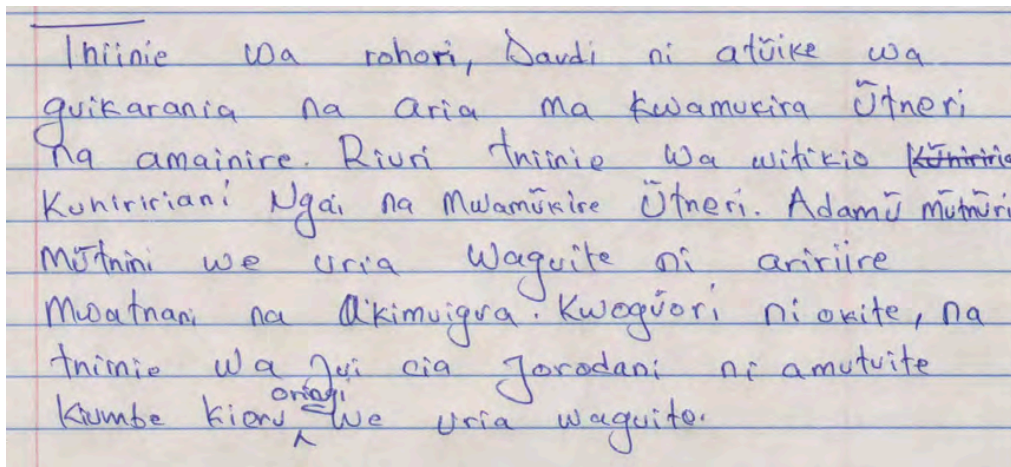 Thiinie wa rohori, Davdi ni atũike wa
guikarania na aria ma kwamukira Ũtheri
na amainire. Riuri thiinie wa witikio Kũhiriria
Kuhiririani Ngai na Mwamũkire Ũtheri. Adamũ mũthũri
Mũthini we uria waguite ni aririire
Mwathani na akimuigua. Kwoguori ni okite, na
thinie wa Jui cia Jorodani ni amutuite
Kiumbe kieru oriagi we uria waguite.